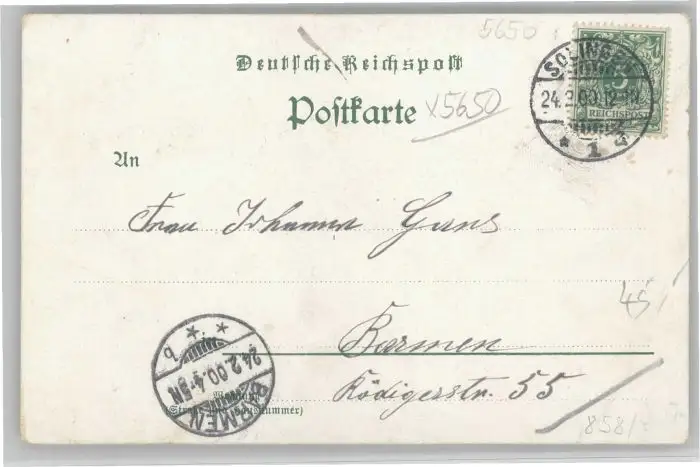 5650
Deutsche Reichspost
Postkarte
x5650
SOLINGEN
24.2.00.12-1N.
* 1 d
5
REICHSPOST
An
Frau Johanna Gans
45
Barmen
Rödigerstr. 55
BARMEN
24.2.00.4-5N
* * b
Wohnung
(Straße und Hausnummer)
858/